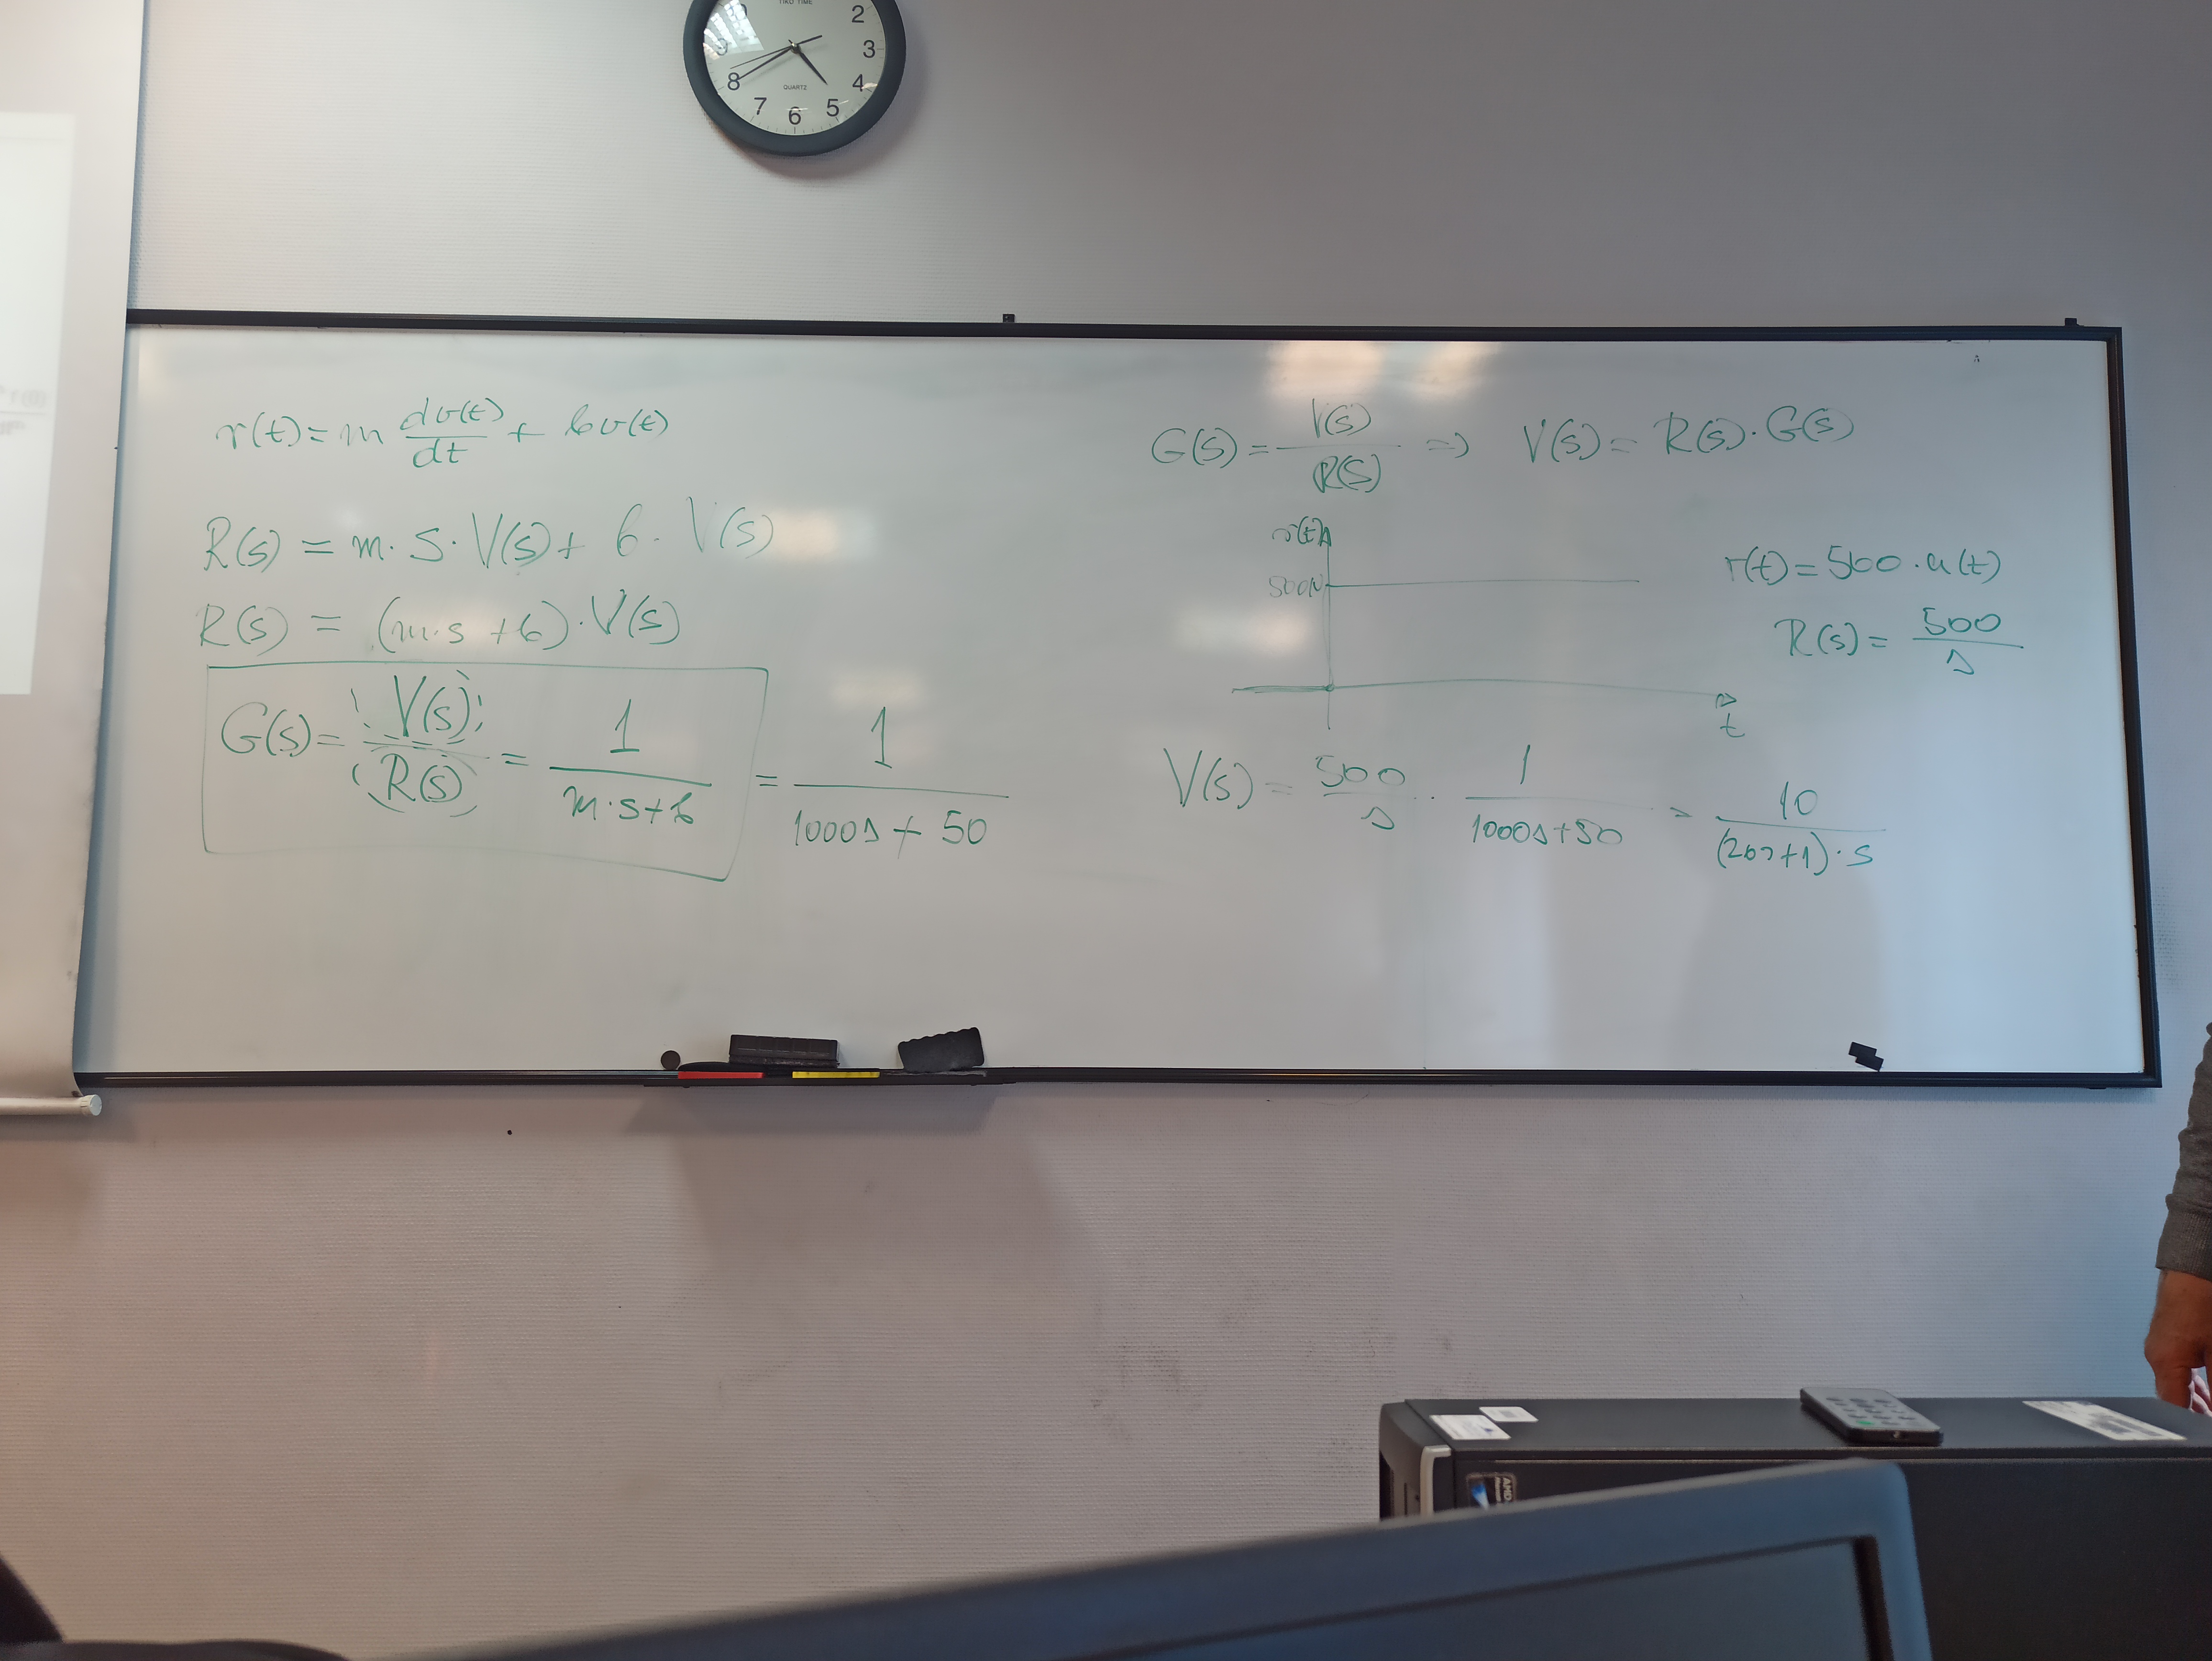 TIKO TIME
2
3
4
5
6
7
8
9
QUARTZ
r(t) = m dv(t)/dt + bv(t)
R(s) = m·s·V(s) + b·V(s)
R(s) = (m·s + b)·V(s)
G(s) = V(s)/R(s) = 1/(m·s+b) = 1/(1000s + 50)
G(s) = V(s)/R(s) => V(s) = R(s)·G(s)
r(t)
500N
t
r(t) = 500·u(t)
R(s) = 500/s
V(s) = 500/s · 1/(1000s+50) = 10/((20s+1)·s)
AMD